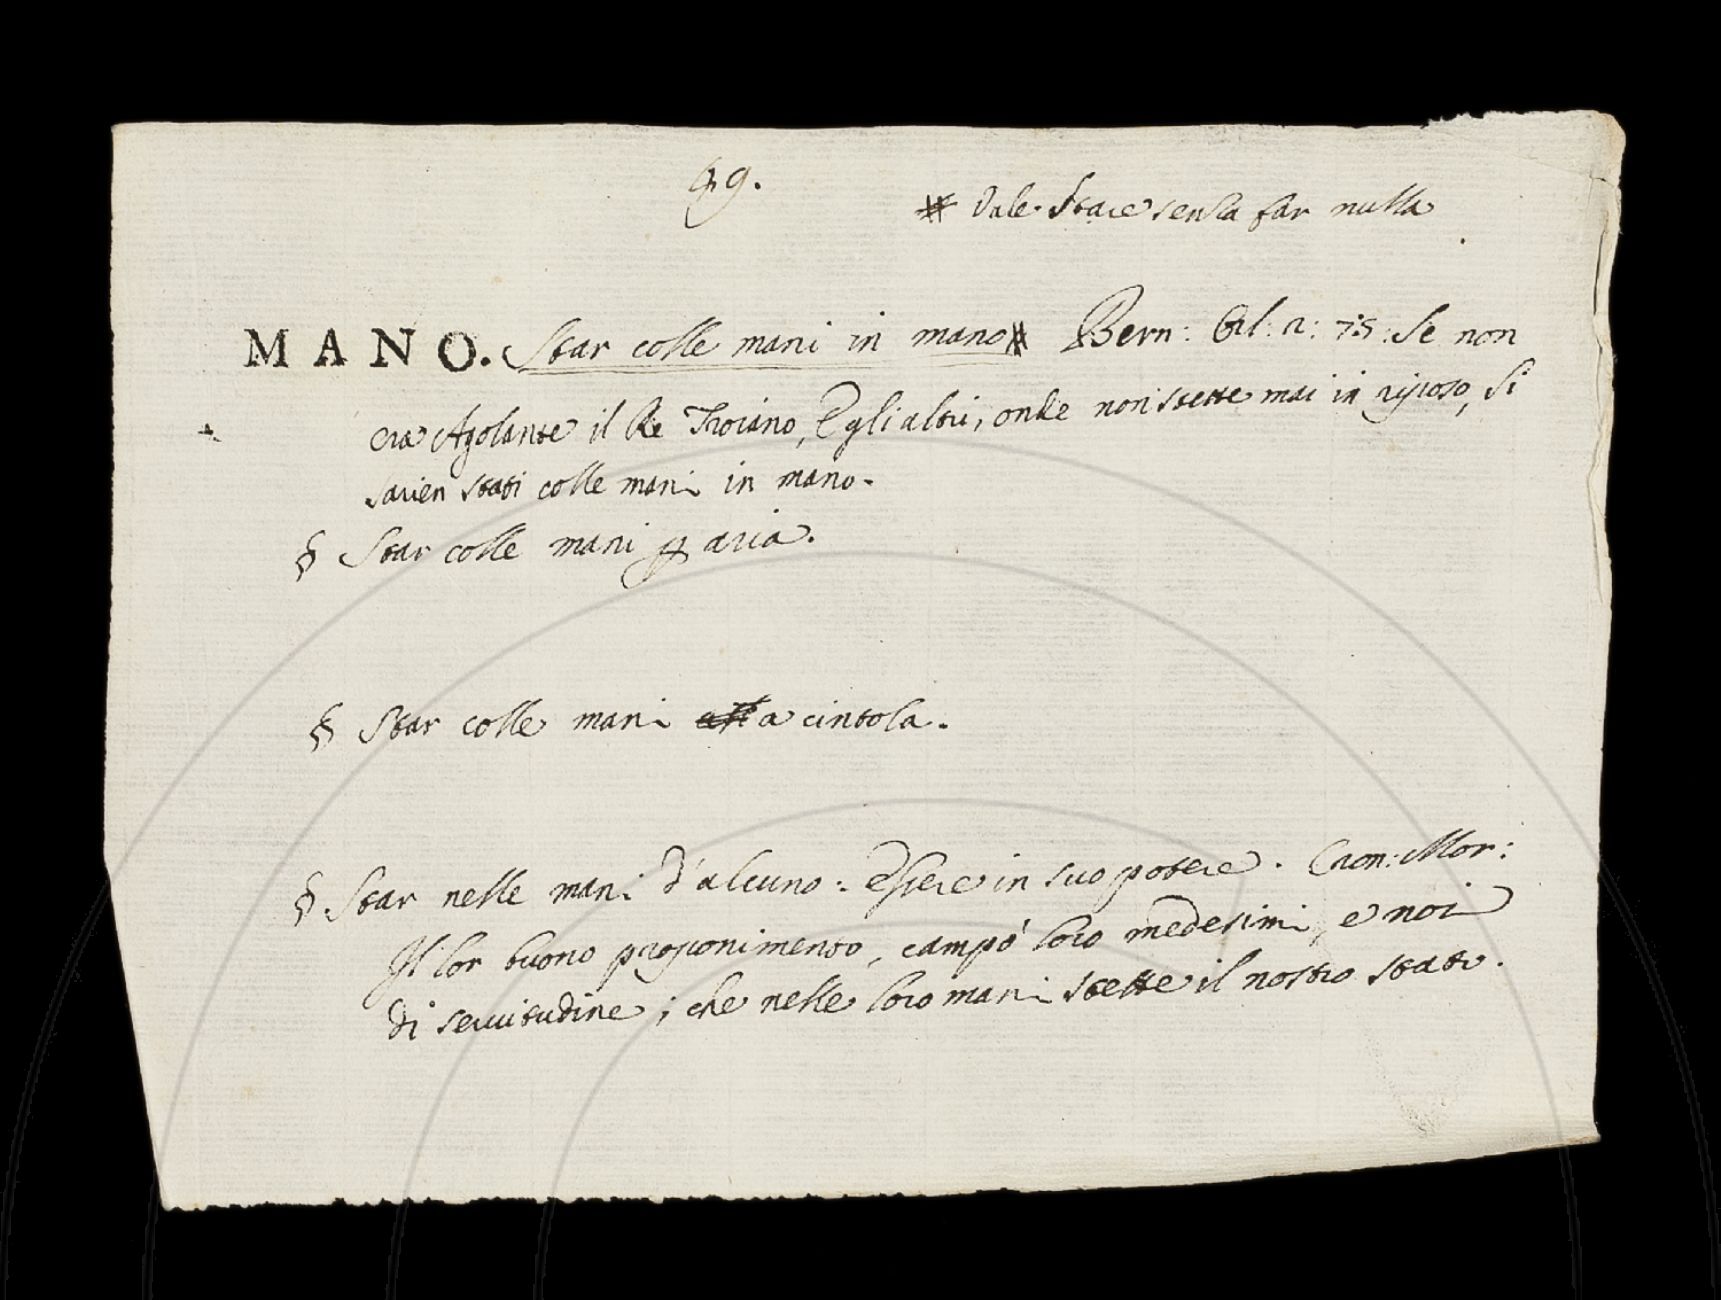 49.
# Vale Stare senza far nulla
MANO. Star colle mani in mano # Bern: Orl: 2: 75: Se non
era Agolante il Re Troiano, E gli altri, onde non stette mai in riposo, Si
sarien stati colle mani in mano.
§ Star colle mani p aria.
§ Star colle mani a cintola.
§ Star nelle mani d'alcuno: Essere in suo potere. Cron: Mor:
Il lor buono proponimento, campò loro medesimi, e noi
di servitudine; che nelle loro mani stette il nostro stato.